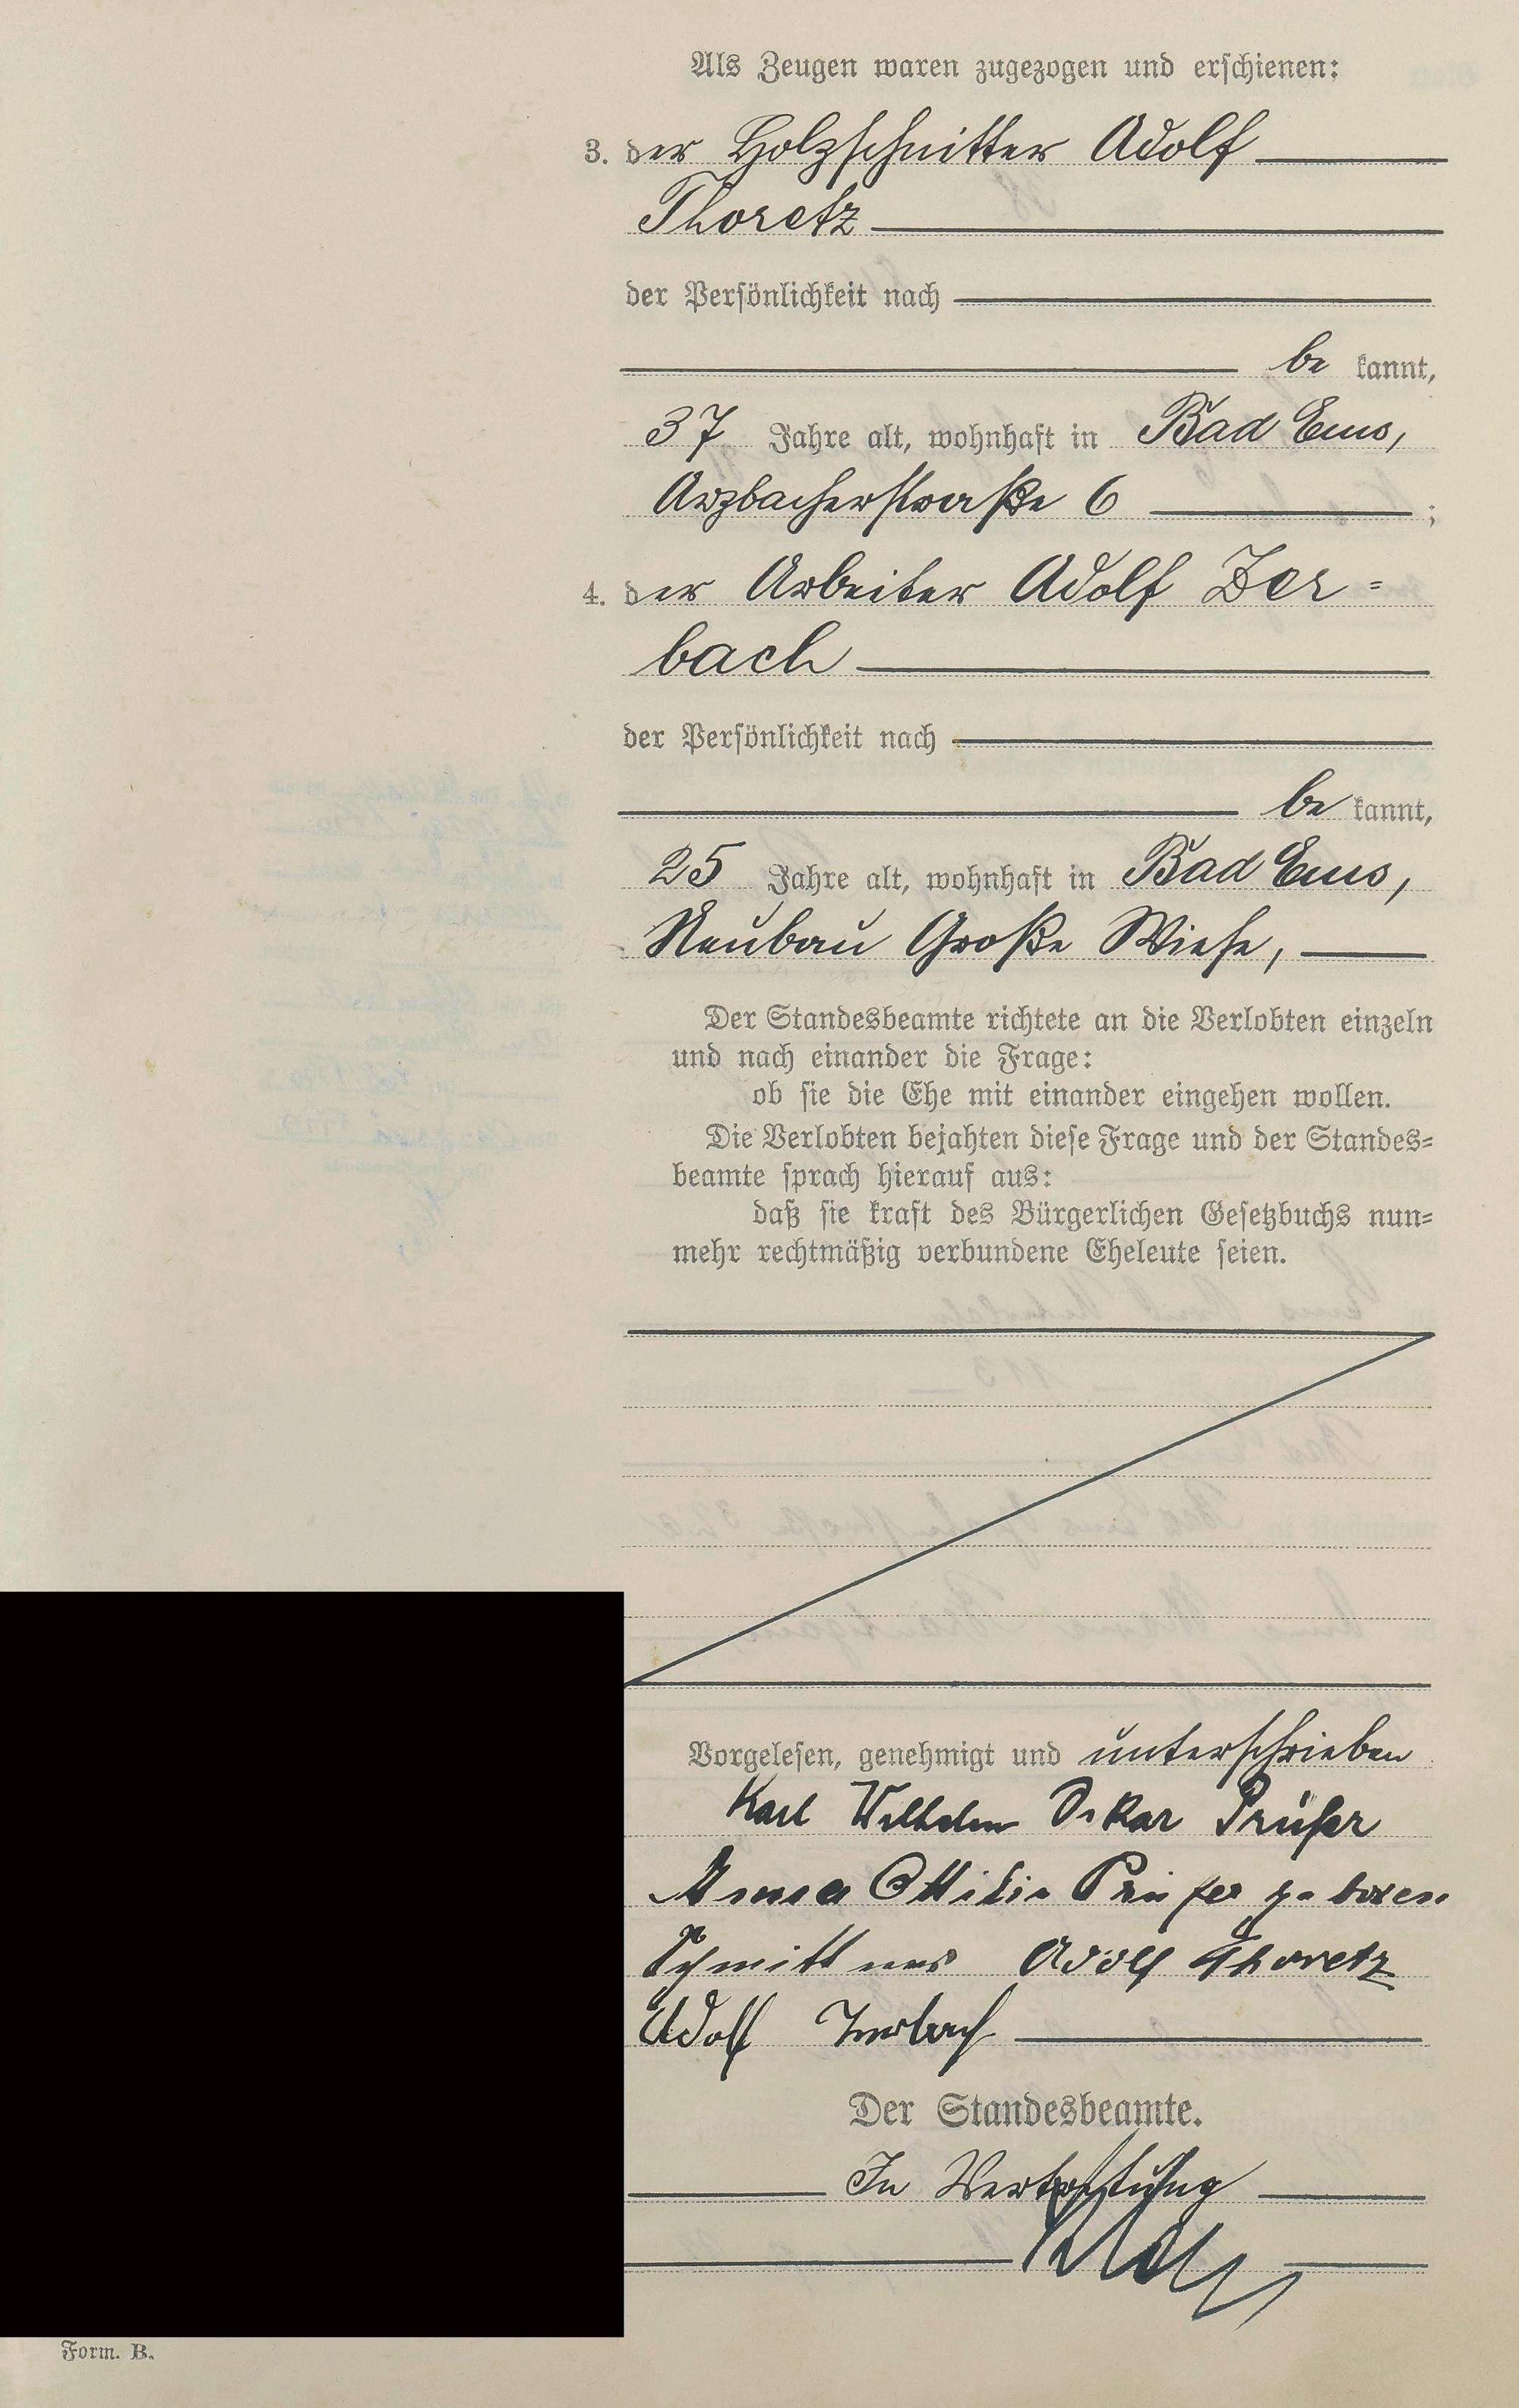 Als Zeugen waren zugezogen und erschienen:
3. der Holzschnitter Adolf
Thoretz
der Persönlichkeit nach
be kannt,
37 Jahre alt, wohnhaft in Bad Ems,
Arzbacherstraße 6 ;
4. der Arbeiter Adolf Zer=
bach
der Persönlichkeit nach
be kannt,
25 Jahre alt, wohnhaft in Bad Ems,
Neubau Große Wiese,
Der Standesbeamte richtete an die Verlobten einzeln
und nach einander die Frage:
ob sie die Ehe mit einander eingehen wollen.
Die Verlobten bejahten diese Frage und der Standes=
beamte sprach hierauf aus:
daß sie kraft des Bürgerlichen Gesetzbuchs nun=
mehr rechtmäßig verbundene Eheleute seien.
Vorgelesen, genehmigt und unterschrieben
Karl Wilhelm Oskar Prüfer
Anna Ottilie Prüfer geboren
Schmittner Adolf Thoretz
Adolf Zerbach
Der Standesbeamte.
In Vertretung
Form. B.